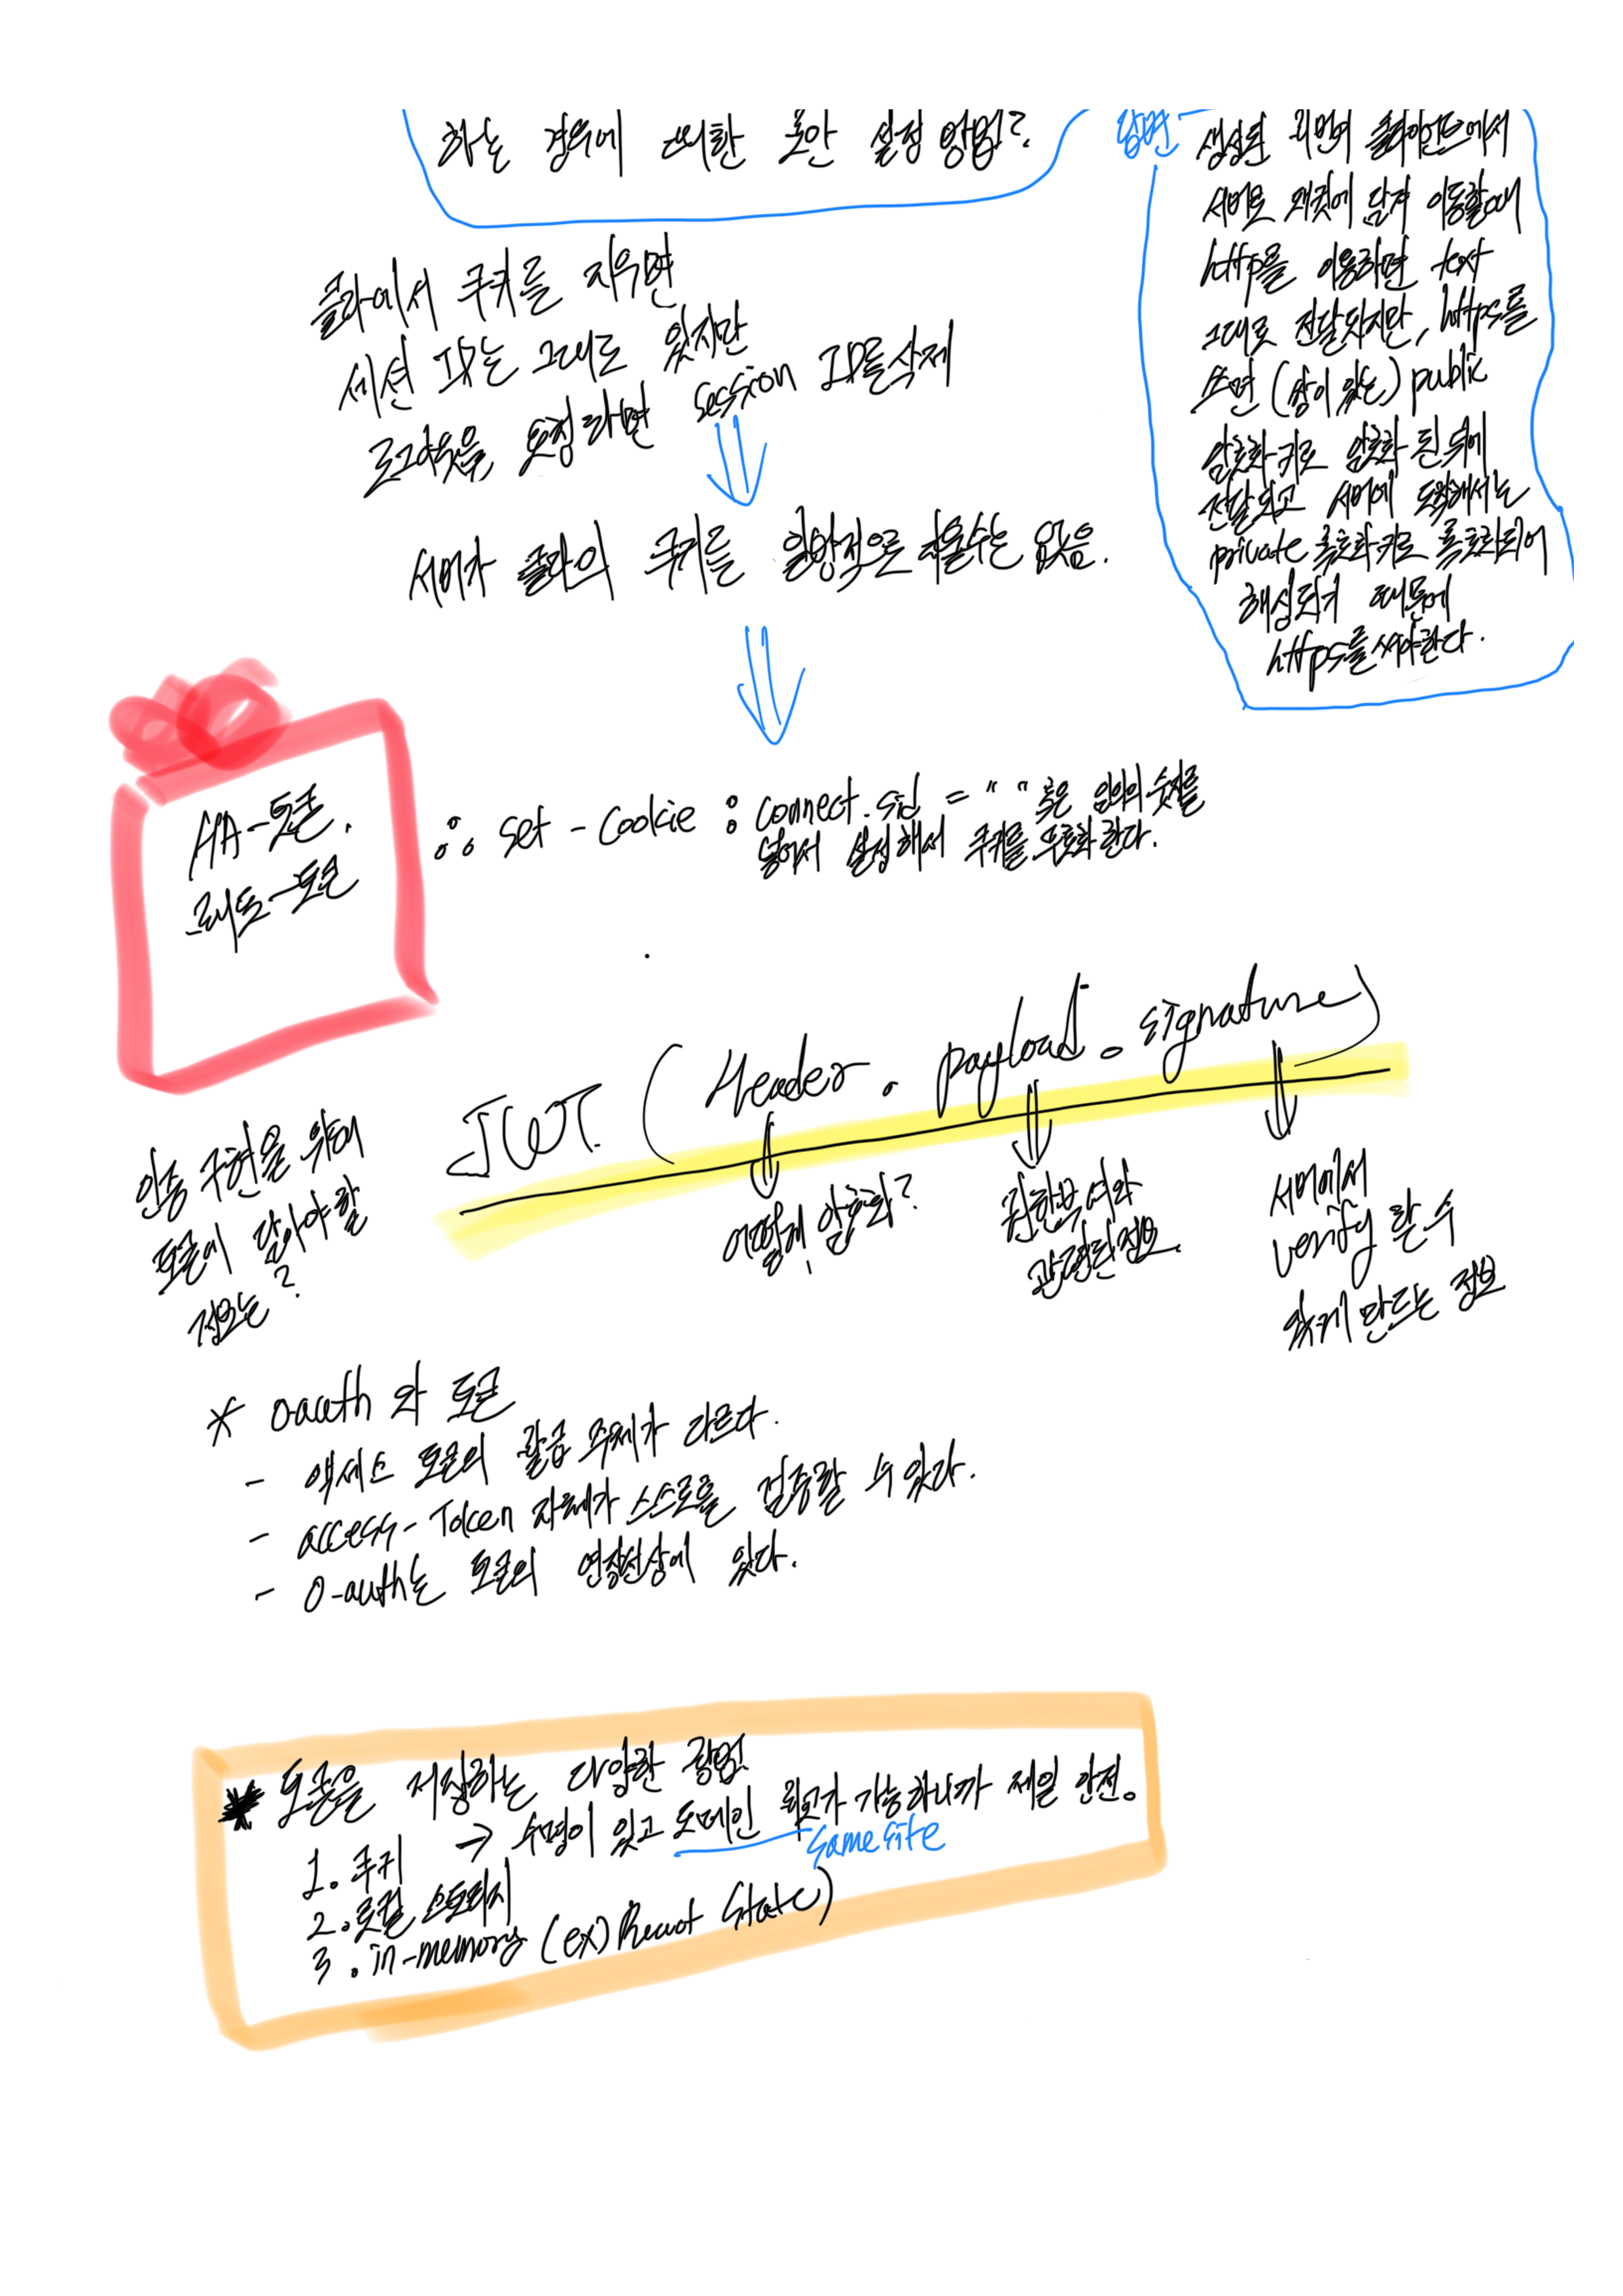 하는 경우에 대한 보안 설정 방법?
답변
생성된 비번이 클라이언트에서
서버로 패킷에 담겨 이동할때
http를 이용하면 text
그대로 전달되지만, https를
쓰면 (쌍이 있는) public
암호화키로 암호화 된 뒤에
전달되고 서버에 도착해서는
private 복호화키로 복호화되어
해싱되기 때문에
https를 써야한다.
클라에서 쿠키를 지우면
세션 ID는 그대로 있지만
로그아웃을 요청하면 session ID를 삭제
서버가 클라의 쿠키를 일방적으로 지울수는 없음.
∴ set-cookie : connect.sid = " " 혹은 임의의 숫자를
넣어서 설정해서 쿠키를 무효화 한다.
-토큰.
-토큰
JWT ( Header . payload . signature )
인증 구현을 위해
토큰에 담아야할
정보는?
어떻게 암호화?
권한부여와
관련된 정보
서버에서
verify 할 수
있게 만드는 정보
* o-auth 와 토큰
- 액세스 토큰의 발급 주체가 다르다.
- access-Token 자체가 스스로를 검증할 수 있다.
- o-auth는 토큰의 연장선상에 있다.
* 토큰을 저장하는 다양한 방법.
1. 쿠키 → 수명이 있고 도메인 비교가 가능하니까 제일 안전.
same site
2. 로컬 스토리지
3. in-memory (ex) React State)